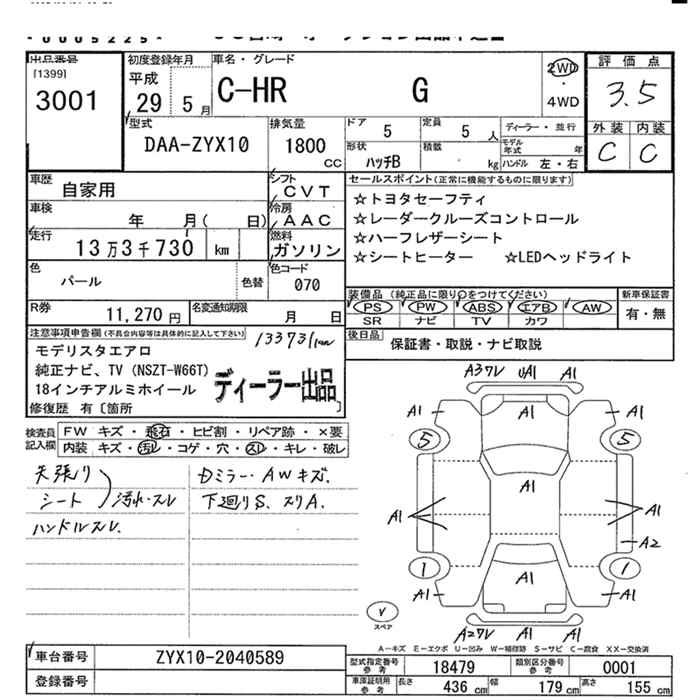 出品番号 初度登録年月 車名・グレード 評価点
[1399] 平成 C-HR G 2WD ・ 4WD 3.5
3001 29 5月
型式 排気量 ドア 定員 ディーラー・並行 外装 内装
DAA-ZYX10 1800 CC 5 5人 モデル年式 年 C C
形状 積載
ハッチB kg ハンドル 左・右
車歴 シフト セールスポイント(正常に機能するものに限ります)
自家用 CVT ☆トヨタセーフティ
車検 冷房 ☆レーダークルーズコントロール
年 月( 日) AAC ☆ハーフレザーシート
走行 燃料 ☆シートヒーター ☆LEDヘッドライト
13万3千730 km ガソリン
色 色替 色コード 装備品(純正品に限り○をつけてください) 新車保証書
パール 070 PS PW ABS エアB AW 有・無
R券 名変通知期限 SR ナビ TV カワ
11,270円 月 日 後日品
注意事項申告欄(不具合内容等は具体的に記入して下さい) 133731km 保証書・取説・ナビ取説
モデリスタエアロ
純正ナビ、TV(NSZT-W66T)
18インチアルミホイール ディーラー出品
修復歴 有〔箇所
検査員記入欄 FW キズ・飛石・ヒビ割・リペア跡・×要
内装 キズ・汚れ・コゲ・穴・スレ・キレ・破レ
天張り Dミラー・AWキズ.
シート 汚れ・スレ 下廻りS、スリA.
ハンドルスレ.
A3ワレ UA1 A1
A1 A1
5 5
A1
A1 A1 A1
A2
1 1
A1 A1 A1
A2ワレ A1
V
スペア
A-キズ E-エクボ U-凹み W-補修跡 S-サビ C-腐食 XX-交換済
車台番号 ZYX10-2040589 型式指定番号参考 18479 類別区分番号参考 0001
登録番号 車庫証明用参考 長さ 436 cm 幅 179 cm 高さ 155 cm